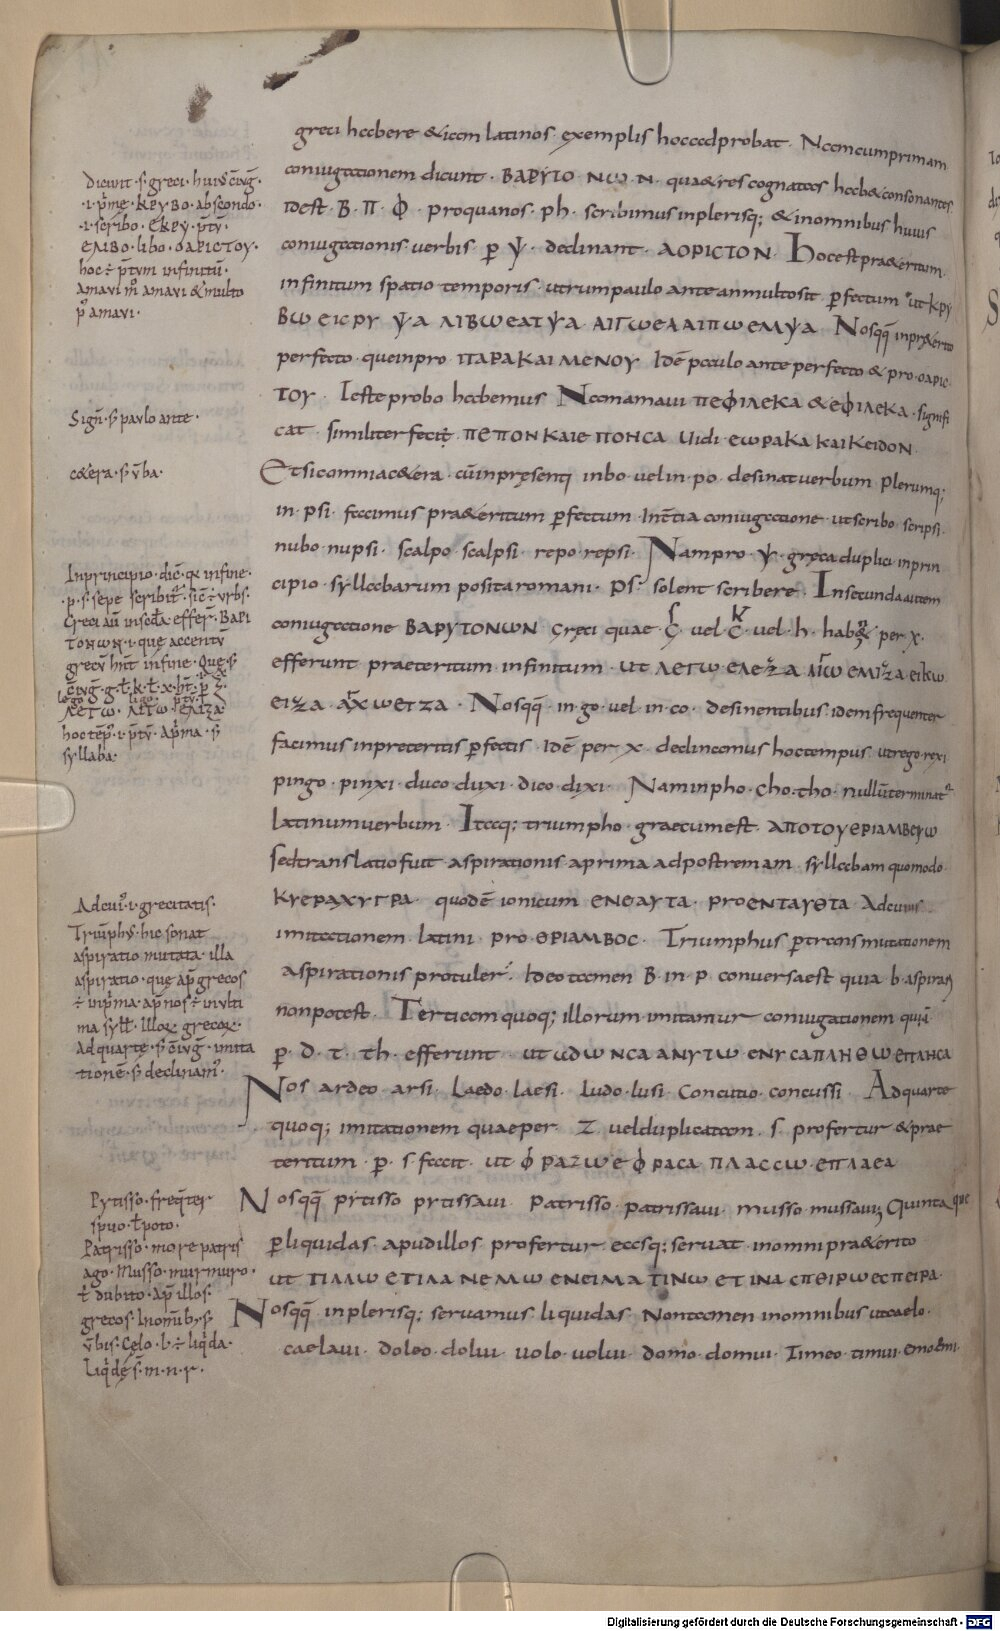 greci habere & iam latinos exemplis hoc adprobat. Nam cum primam
coniugationem dicunt. ΒΑΡΥΤΟ ΝΩΝ. quae res cognatas hab& consonantes
idest. B. Π. Φ. pro qua nos. ph. scribimus in plerisq; & in omnibus huius
coniugationis uerbis p̲ Ψ. declinant. ΑΟΡΙCΤΟΝ. Hoc est praeteritum
infinitum spatio temporis. utrum paulo ante an multo sit p̲fectum ut ΚΡΥ
ΒΩ ΕΙCΡΥ ΨΑ ΛΙΒΩ ΕΑΤΨΑ ΑΙΓΩΕΛΑΙΠΩ ΕΜΨΑ Nosq̄q̄ in prae&erito
perfecto. que in pro ΠΑΡΑΚΑΙΜΕΝΟΥ Idē paulo ante perfecto & pro. ΟΑΡΙC
ΤΟΥ. Iaste probo habemus Nam amaui ΠΕΦΙΛΕΚΑ & ΕΦΙΛΕΚΑ. signifi
cat. similiter fecit. ΠΕΠΟΝΚΑΙΕΠΟΝCΑ Uidi. ΕΩΡΑΚΑ ΚΑΙ ΚΕΙΔΟΝ
Etsi omnia c&era. cū in presenti in bo uel in. po. desinat uerbum plerumq;
in. psi. facimus prae&eritum p̲fectum. In t̄tia coniugatione. ut scribo scripsi
nubo nupsi. scalpo scalpsi repo repsi. Nam pro. Ψ. greca duplici in prin
cipio. syllabarum posita romani. ps. solent scribere. In secunda autem
coniugatione ΒΑΡΥΤΟΝΩΝ Greci quae Ç uel C uel. h. hab& per x
efferunt praeteritum infinitum ut ΛΕΓΩ ΕΛΕΖΑ ΛΙΓΩ ΕΛΙΖΑ ΕΙΚΩ
ΕΙΖΑ ΑΧΩ ΕΤΖΑ. Nosq̄q̄. in. go. uel in. co. desinentibus idem frequenter
facimus in preteritis p̲fectis. Idē per x. declinamus hoc tempus. ut rego rexi
pingo. pinxi. duco duxi. dico. dixi. Nam in pho. cho. tho. nullū terminat
latinum uerbum. Itaq; triumpho graecum est. ΑΠΟΤΟΥ ΘΡΙΑΜΒΕΥΩ
sed translatio fuit aspirationis a prima ad postremam syllabam quomodo
ΚΥΕΡΑΧΥΓΡΑ quod ē ionicum ΕΝΘΑΥΤΑ. pro ΕΝΤΑΥΘΤΑ Ad cuius
imitationem latini pro ΘΡΙΑΜΒΟC. Triumphus p̲ transmutationem
aspirationis protuler̄. Ideo tamen B. in p. conuersa est quia b. aspirari
non potest. Tertiam quoq; illorum imitamur coniugationem quā
p̲. d. t. th. efferunt
Nos ardeo arsi. Laedo. laesi. Ludo. lusi. Concutio. concussi Ad quarte
quoq; imitationem quae per Z uel duplicatam. s. profertur & prae
teritum p̲. s. facit. ut ΦΡΑΖΩ ΕΦΡΑCΑ ΠΛΑCCΩ. ΕΠΛΑΕΑ
Nosq̄q̄ pytisso pytissaui. patrisso. patrissaui. musso. mussaui; Quinta que
p̲ liquidas. apud illos profertur easq; seruat in omni prae&erito
ut ΤΙΛΛΩ ΕΤΙΛΑ ΝΕΜΩ ΕΝΕΙΜΑ ΤΙΝΩ ΕΤΙΝΑ CΠΘΙΡΩ ΕCΠΕΙΡΑ
Nosq̄q̄ in plerisq; seruamus liquidas Non tamen in omnibus ut caelo.
caelaui. doleo. dolui. uolo. uolui. domo. domui. Timeo. timui. emo emi.
Dicunt. s. greci. huiꝰ c̄iug̅.
.i. p̄me. ΚΡΥΒΟ. abscondo.
.i. scribo. ΕΚΡΥ. p̄tꝟ.
ΕΛΙΒΟ. libo. ΟΑΡΙCΤΟΥ.
hoc ē p̄tum infinitū.
amaui m̊ amaui & multo
p̊ amaui.
Sign̄. s̄ paulo ante.
c&era. s̄ ūba.
In principio. dic̄. q̄ in fine.
p. s. sepe scribit̄. sic̄ ē urbs.
Greci au̅ in sc̅da effer̄. ΒΑΡΙ
ΤΟΝΩΝ. i. que accentū
grecū hn̄t in fine. Que s̄
hoc tēp̄. i. p̄tꝟ. a p̄ma. s̄
syllaba.
Ad cuiꝰ. i. grecitatis.
Triūphꝰ. hic sonat
aspiratio mutata. illa
aspiratio. que ap̄ grecos
ē in p̄ma. ap̄ nos ē in ulti
ma syll̄. Illoꝝ grecoꝝ.
Ad quarte. s̄ c̄iug̅. imita
tionē. s̄ declinamꝰ.
Pytisso. freq̄ter
spuo. ł poto.
Patrisso. more patris
ago. Musso. murmuro.
ł dubito. Ap̄ illos.
grecos. In omīb; s̄
ūbis. Celo. l. ē liq̄da.
Liq̄de s̄. m. n. r.
Digitalisierung gefördert durch die Deutsche Forschungsgemeinschaft - DFG